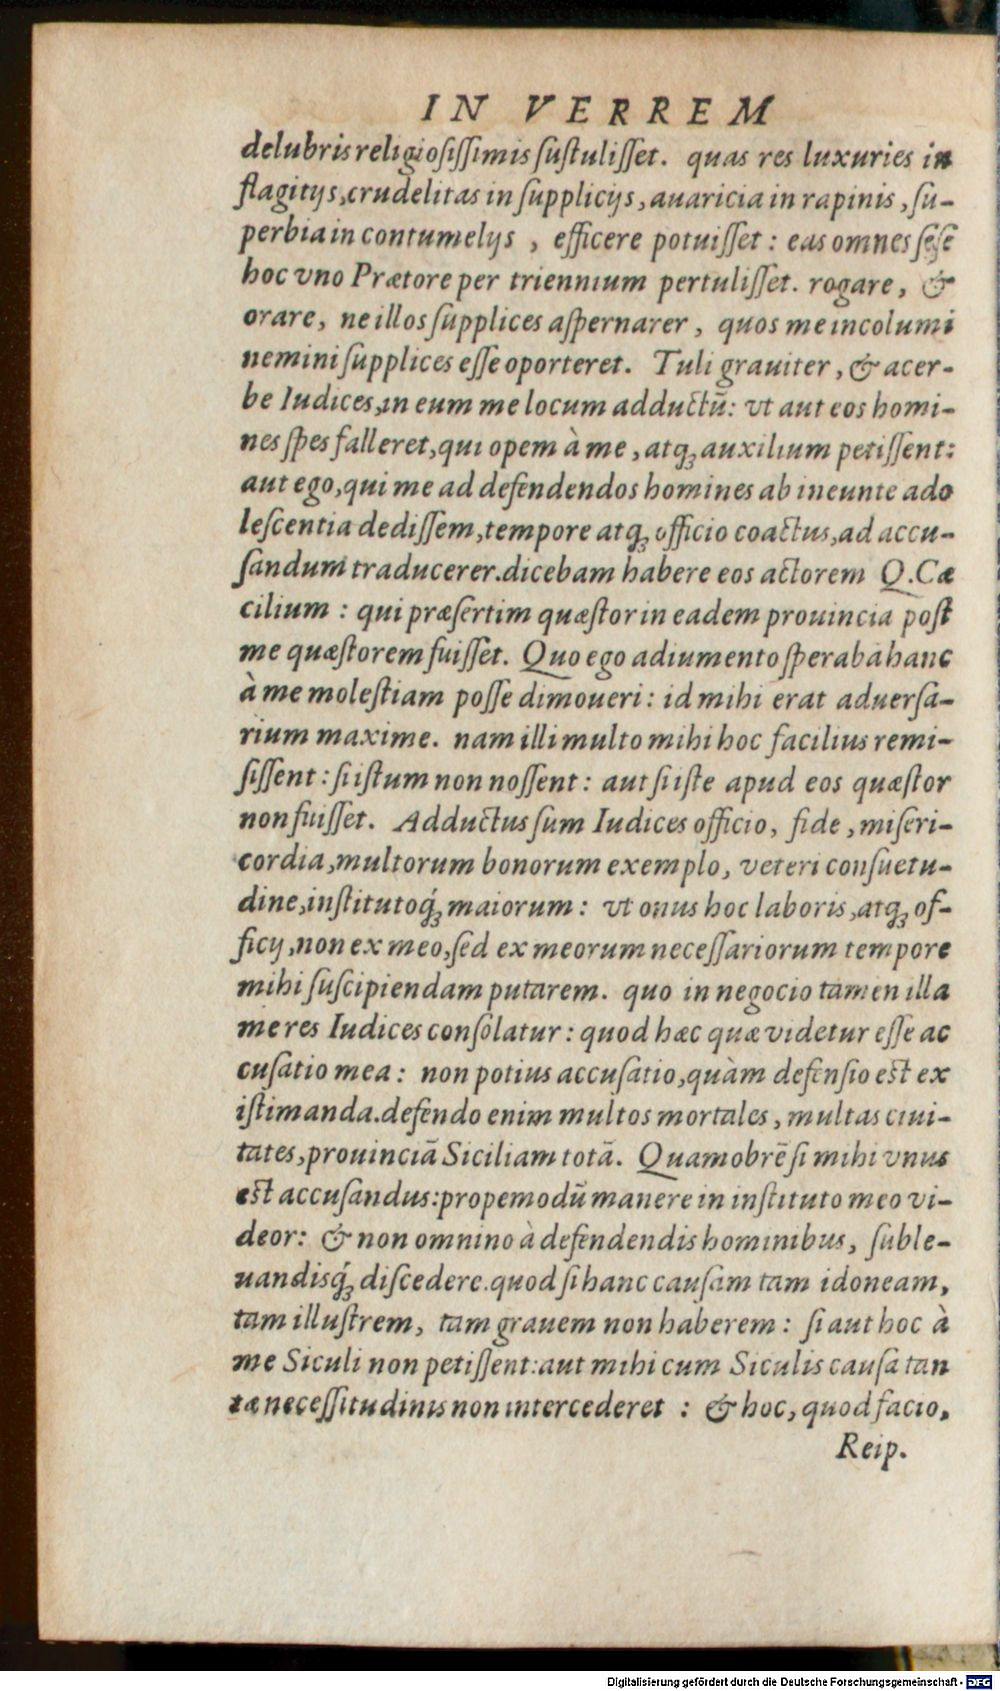 IN VERREM
delubris religiosißimis ſuſtuliſſet. quas res luxuries in
flagitijs, crudelitas in ſupplicijs, auaricia in rapinis, ſu-
perbia in contumelijs , efficere potuiſſet : eas omnes ſeſe
hoc vno Prætore per triennium pertuliſſet. rogare, &
orare, ne illos ſupplices aſpernarer , quos me incolumi
nemini ſupplices eſſe oporteret. Tuli grauiter, & acer-
be Iudices, in eum me locum adductū: vt aut eos homi-
nes ſpes falleret, qui opem à me, atqꝫ auxilium petiſſent:
aut ego, qui me ad defendendos homines ab ineunte ado
leſcentia dediſſem, tempore atqꝫ officio coactus, ad accu-
ſandum traducerer. dicebam habere eos actorem Q. Cæ
cilium : qui præſertim quæſtor in eadem prouincia poſt
me quæſtorem fuiſſet. Quo ego adiumento ſperabā hanc
à me moleſtiam poſſe dimoueri: id mihi erat aduerſa-
rium maxime. nam illi multo mihi hoc facilius remi-
ſiſſent: ſi iſtum non noſſent: aut ſi iſte apud eos quæſtor
non fuiſſet. Adductus ſum Iudices officio, fide, miſeri-
cordia, multorum bonorum exemplo, veteri conſuetu-
dine, inſtitutoq́ꝫ maiorum: vt onus hoc laboris, atqꝫ of-
ficij, non ex meo, ſed ex meorum neceſſariorum tempore
mihi ſuſcipiendam putarem. quo in negocio tamen illa
me res Iudices conſolatur: quod hæc quæ videtur eſſe ac
cuſatio mea: non potius accuſatio, quàm defenſio eſt ex
iſtimanda. defendo enim multos mortales, multas ciui-
tates, prouinciā Siciliam totā. Quamobrē ſi mihi vnus
eſt accuſandus: propemodū manere in inſtituto meo vi-
deor: & non omnino à defendendis hominibus, ſuble-
uandisq́ꝫ diſcedere. quod ſi hanc cauſam tam idoneam,
tam illuſtrem, tam grauem non haberem: ſi aut hoc à
me Siculi non petiſſent: aut mihi cum Siculis cauſa tan
tæ neceſſitudinis non intercederet : & hoc, quod facio,
Reip.
Digitalisierung gefördert durch die Deutsche Forschungsgemeinschaft - DFG